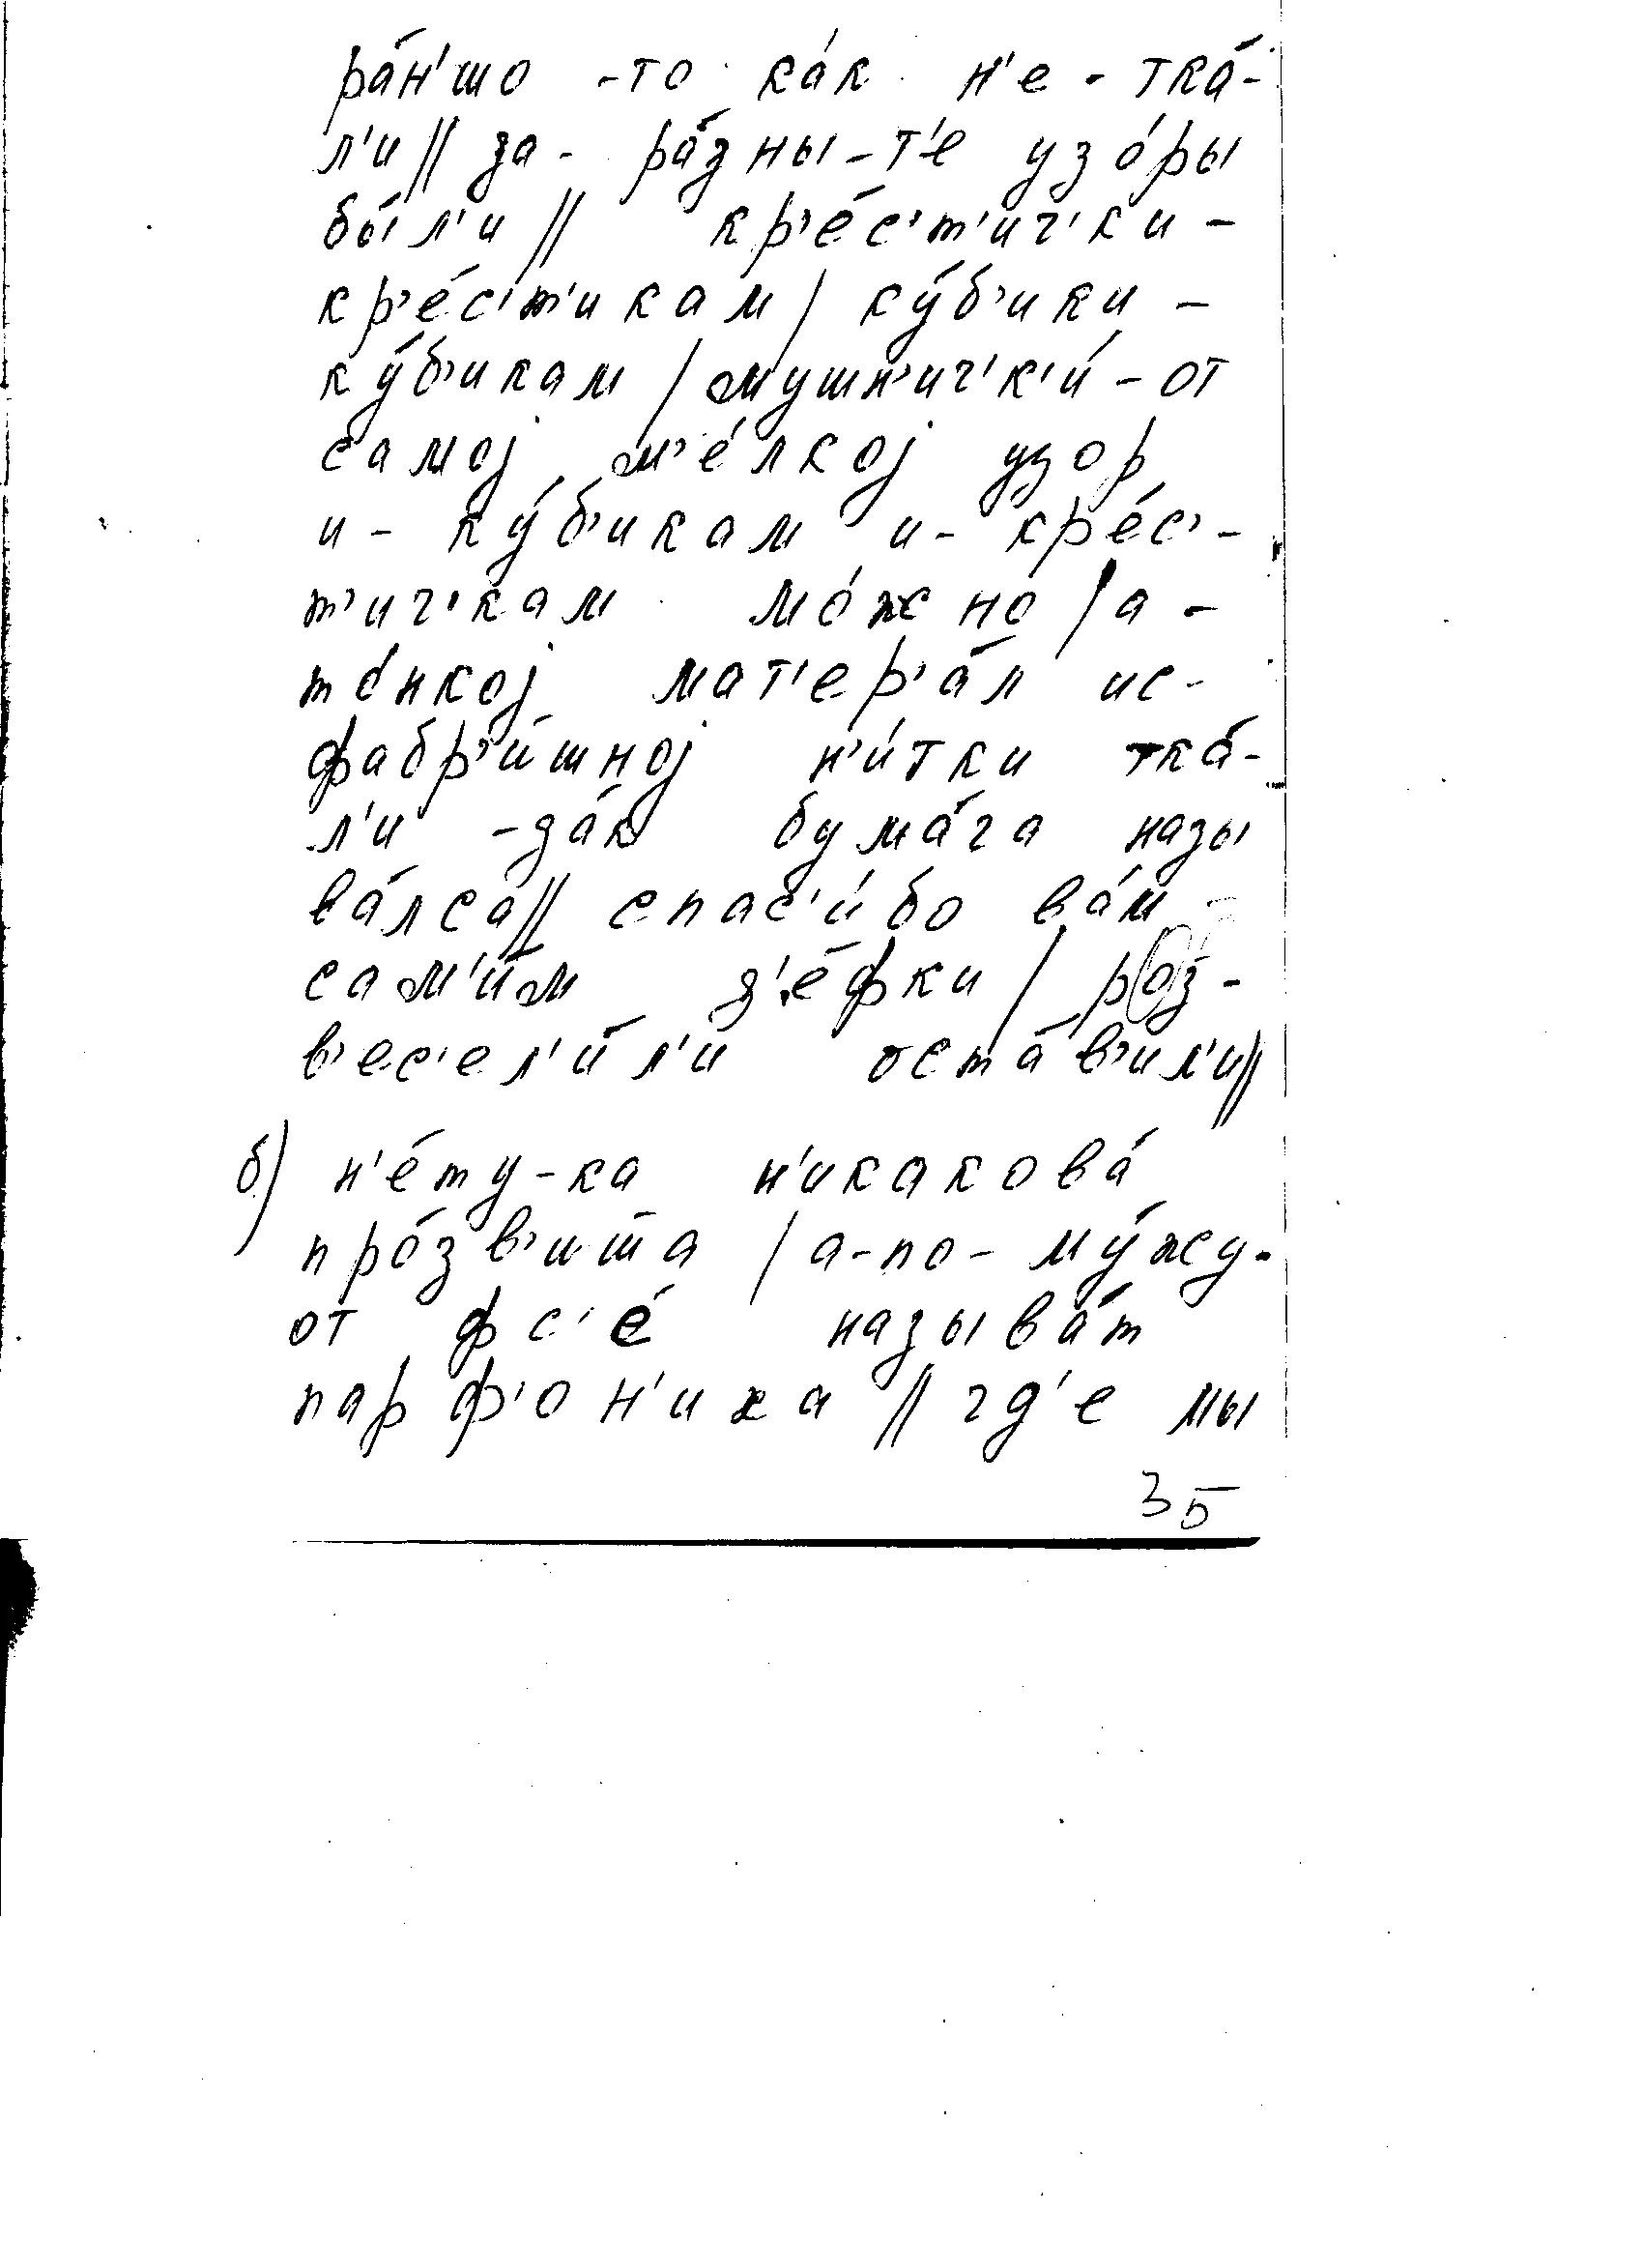 ра́н'шо -то ка́к н'е - тка́-
л'и // за - ра́зны - т'е узо́ры
бы́л'и // кр'е́с'т'ич'ки -
кр'е́с'т'икам / ку́б'ики -
ку́б'икам / мушн'ич'к'и́ - от
самој м'е́лкој узор
и - ку́б'икам и - кре́с' -
т'ич'кам мо́жно / а -
то́нкој мат'ер'а́л ис -
фабр'и́шној н'и́тки тка́-
л'и - да́к бума́га назы
ва́лса́ // спас'и́бо ва́м -
сам'и́м д'е́фки / роз -
в'ес'ел'и́л'и оста́в'ил'и //
б) н'е́ту-ка н'икакова́
про́зв'ишша / а-по- му́жу-
от фс'е́ называ́т
парф'он'иха // гд'е мы
35